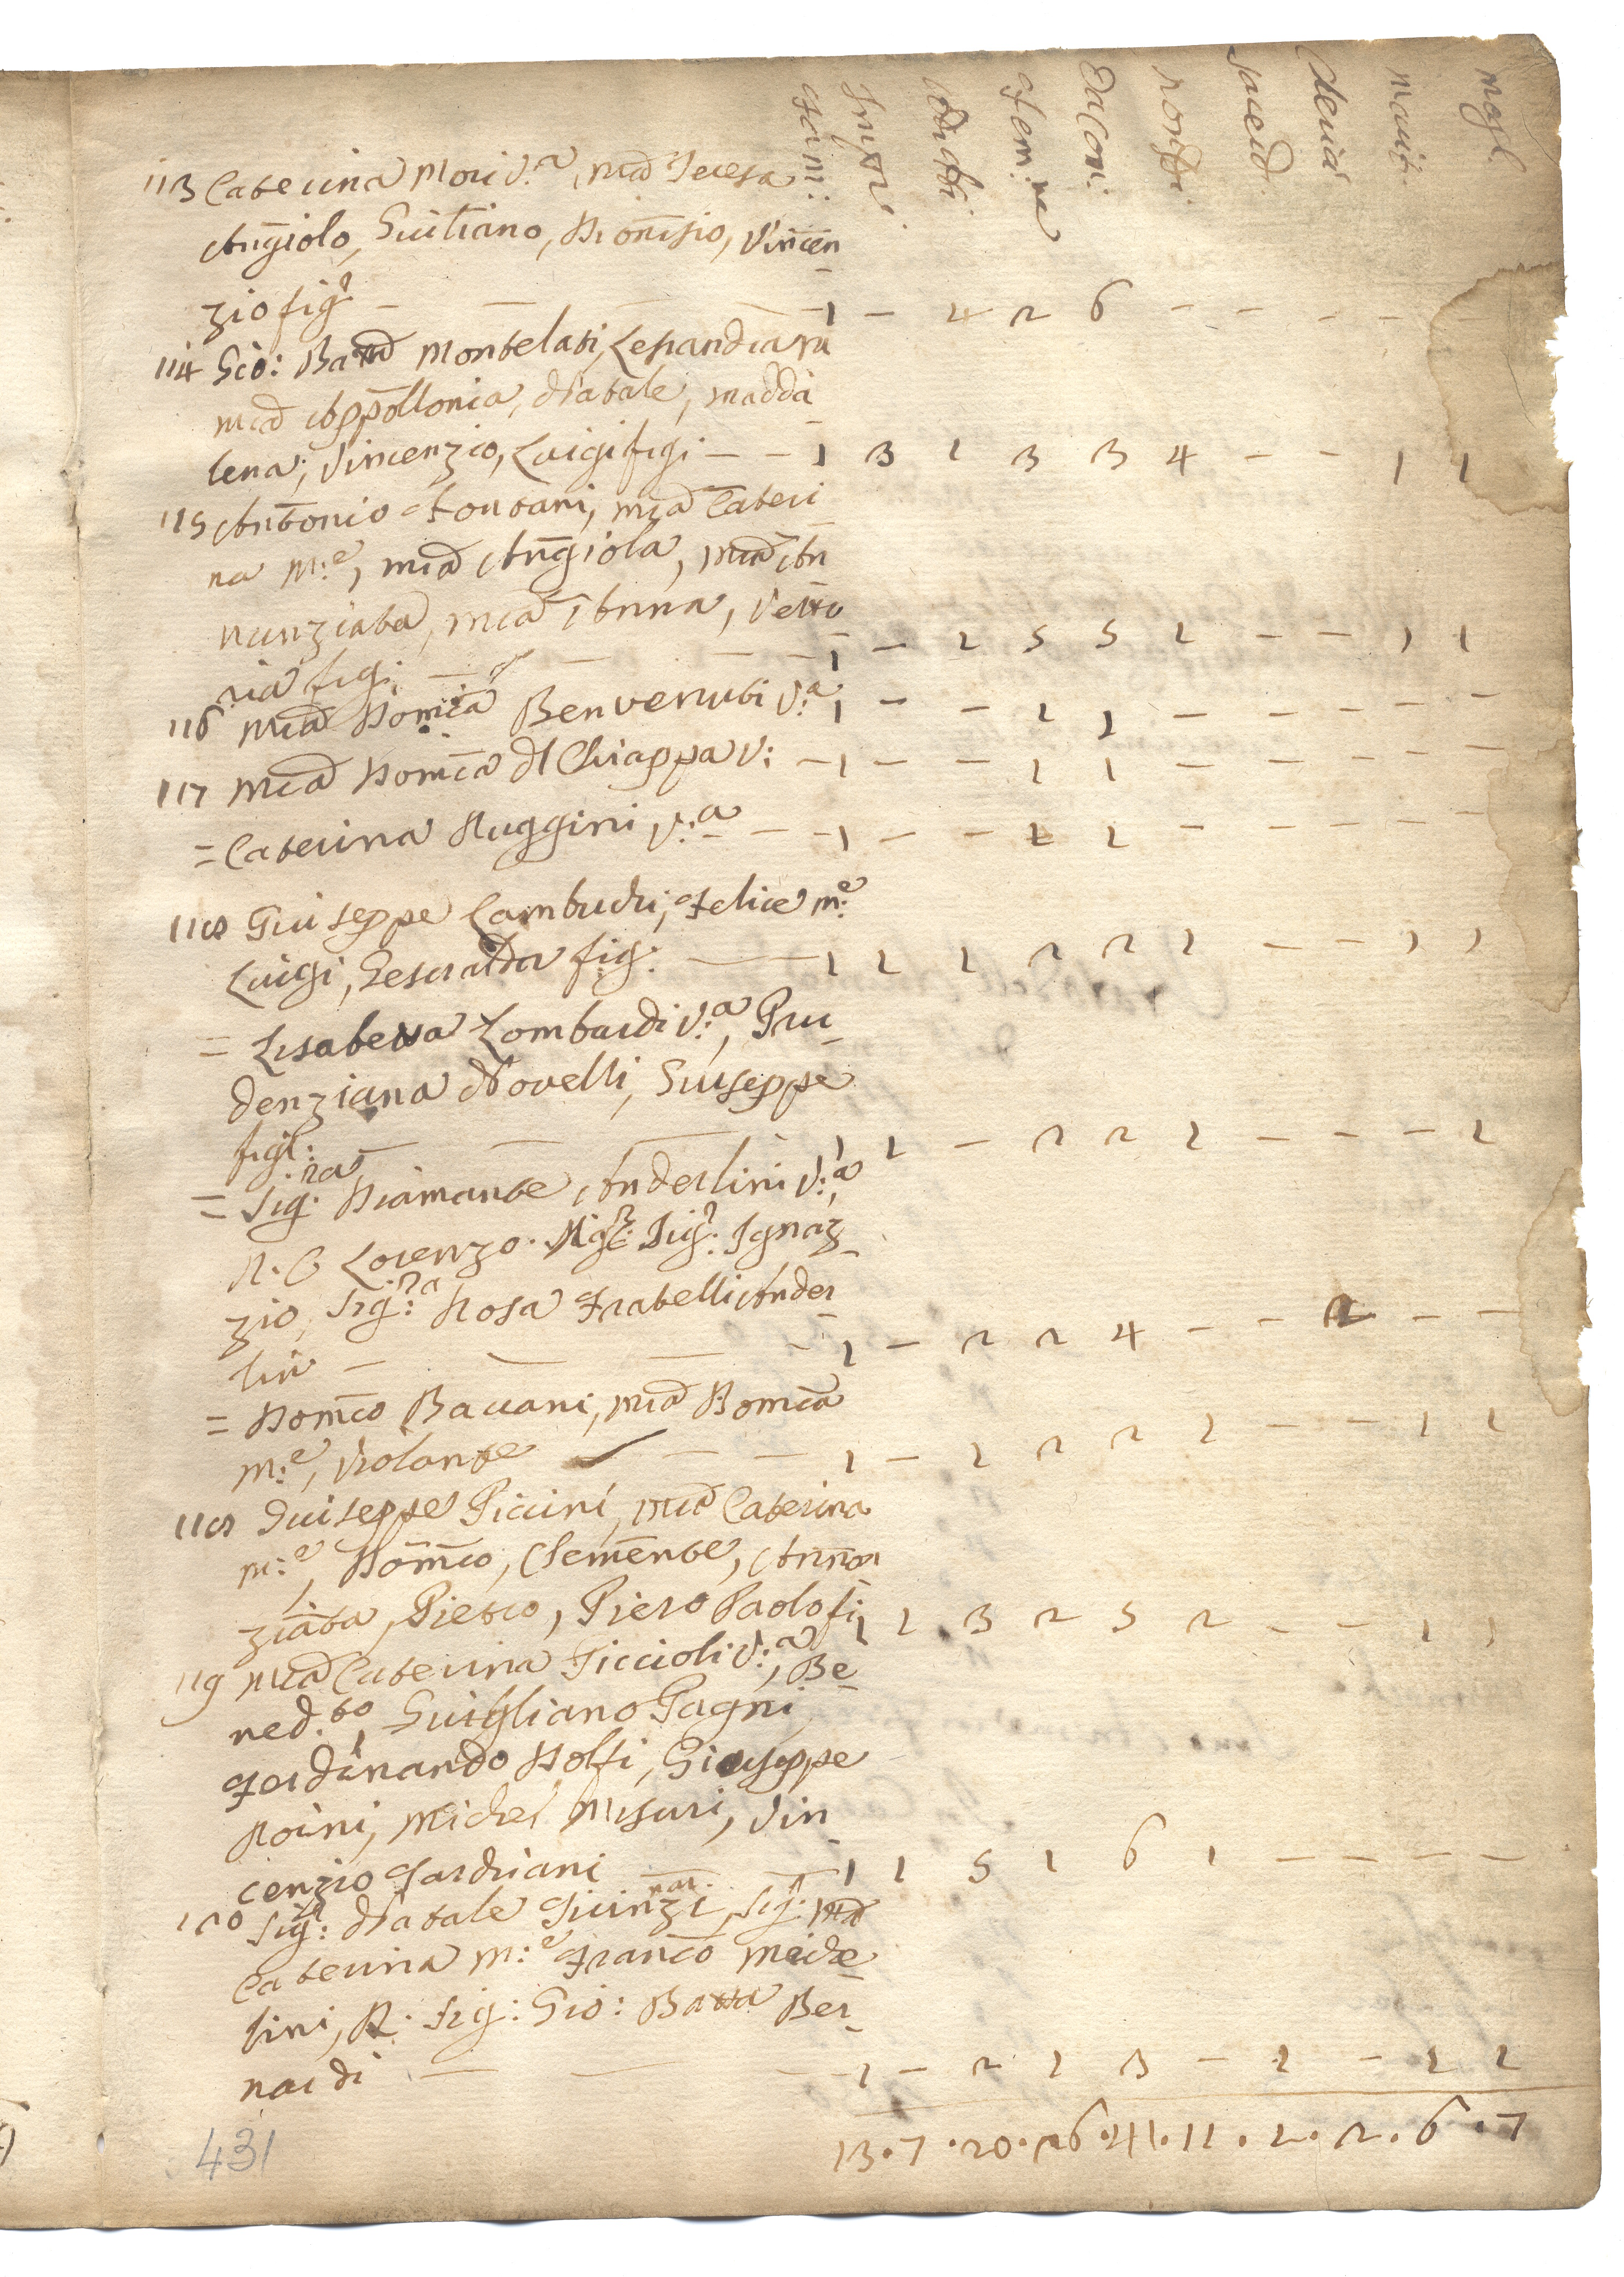 fam: Infr. Adulti fem:ne Da Com: non Da sacerd. clerici marit. mogl.
113 Caterina Mori V:a, ma Teresa
Angiolo, Giuliano, Dionisio, Vincen
zio figi — 1 — 4 2 6 — — — —
114 Gio: Batta Montelati,
ma Appollonia, Natale, Madda
lena, Vincenzio, Luigi figi — — 1 3 1 3 3 4 — — 1 1
115 Antonio Fontani, ma Cateri
na m:e, ma Angiola, ma An
nunziata, ma Anna, Vetto
ria figi — — — 1 — 1 5 5 1 — — 1 1
116 Ma Domca Benvenuti V:a 1 — — 1 1 — — — — —
117 Ma Domca del Chiappa V: — 1 — — 1 1 — — — — —
= Caterina Ruggini V:a — — 1 — — 1 1 — — — — —
118 Giuseppe Lambruchi, Felice m:e
Luigi, Gesualda fig: — 1 1 1 2 2 1 — — 1 1
= Lisabetta Lombardi V:a, Pru
denziana Novelli, Giuseppe
figl: — — — 1 1 — 2 2 1 — — — 1
= Sig:ra Diamante Anderlini V:a,
R. C Lorenzo. Sig: Ignaz
zio, Sig:ra Rosa Fratelli Ander
lin — — — — 1 — 2 2 4 — — 2 — —
= Domco Bavani, ma Domca
m:e, Violante — — — 1 — 1 2 2 1 — — 1 1
118 Giuseppe Piccini, ma Caterina
m:e, Domco, Clemente, Annon
ziata, Pietro, Piero Paolo fi 1 1 3 2 5 2 — — 1 1
119 Ma Caterina Piccioli V:a, Be
ned.to, Guigliano Pagni
Ferdinando Dolfi, Giuseppe
Roini, Michel Misuri, Vin
cenzio — — 1 1 5 1 6 1 — — — — —
120 Sig: Natale Giunzi, Sig: Ma
Caterina m:e Franco Miche
lini, R. Sig: Gio: Batta Ber
nardi — — — 1 — 2 1 3 — 1 — 1 1
13 . 7 . 20 . 26 . 41 . 11 . 1 . 2 . 6 . 7
431